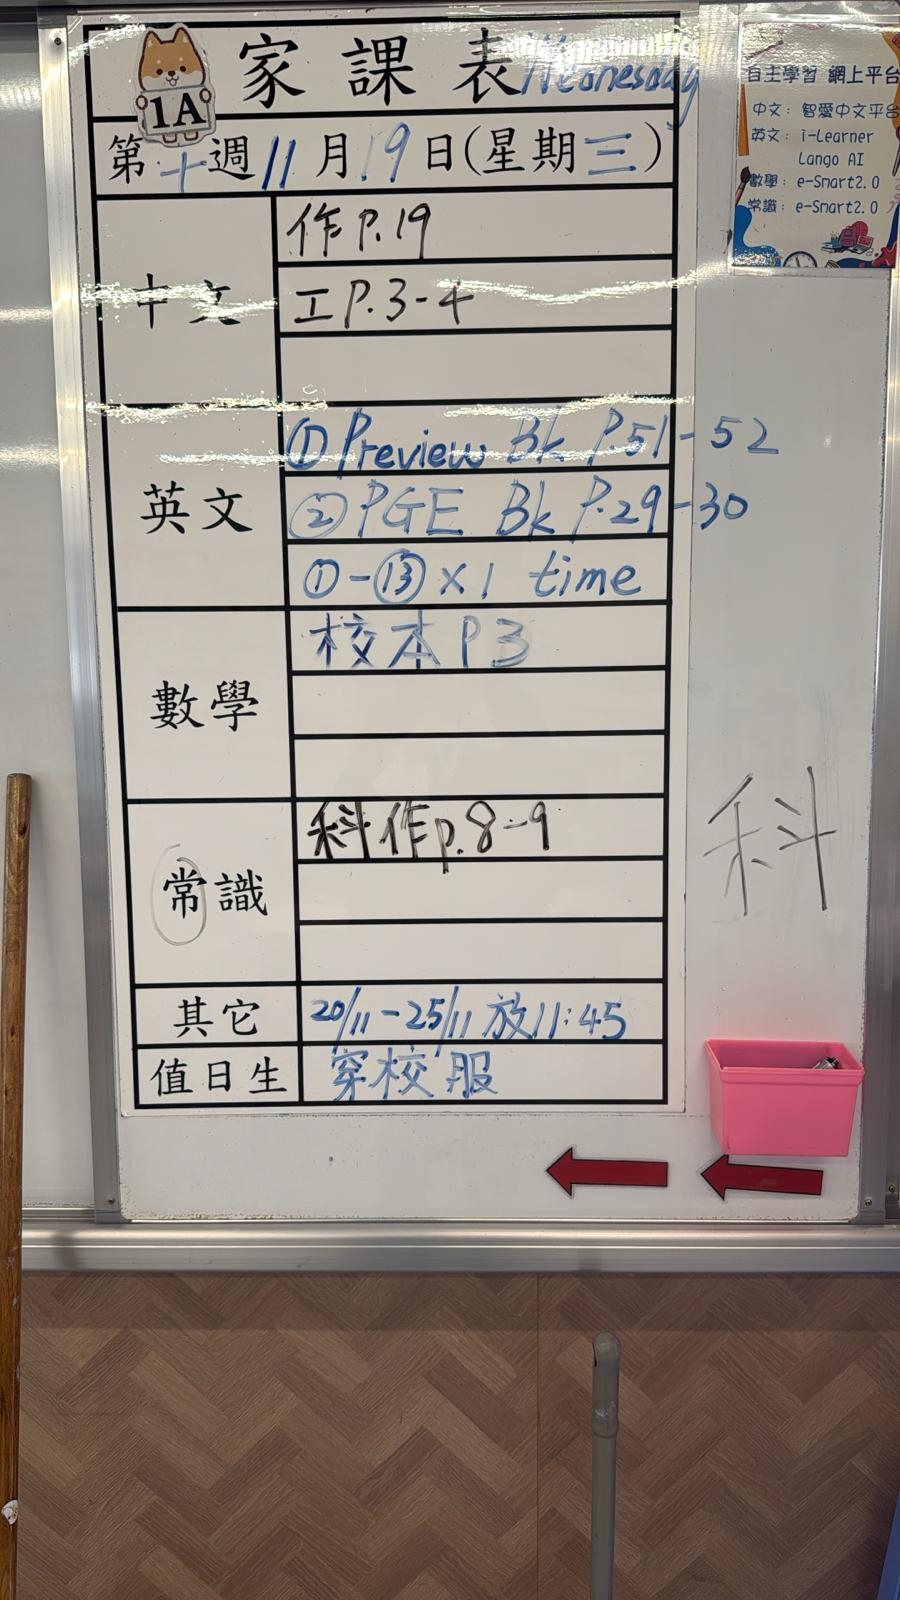 1A
家課表 Wednesday
第十週 11月19日(星期三)
中文
作 P.19
工 P.3-4
英文
① Preview Bk P.51-52
② PGE Bk P.29-30
①-⑬ x 1 time
數學
校本 P 3
常識
科作 p.8-9
科
其它
20/11-25/11 放11:45
值日生
穿校服
自主學習 網上平台
中文: 智愛中文平台
英文: i-Learner
Lango AI
數學: e-Smart2.0
常識: e-Smart2.0